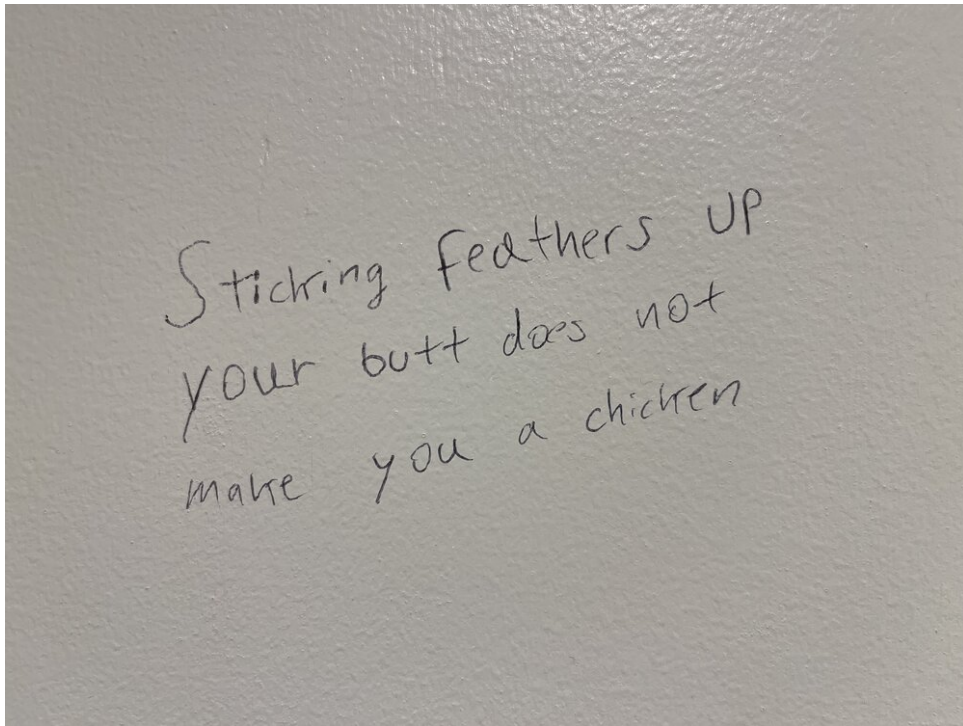 Sticking feathers up
your butt does not
make you a chicken